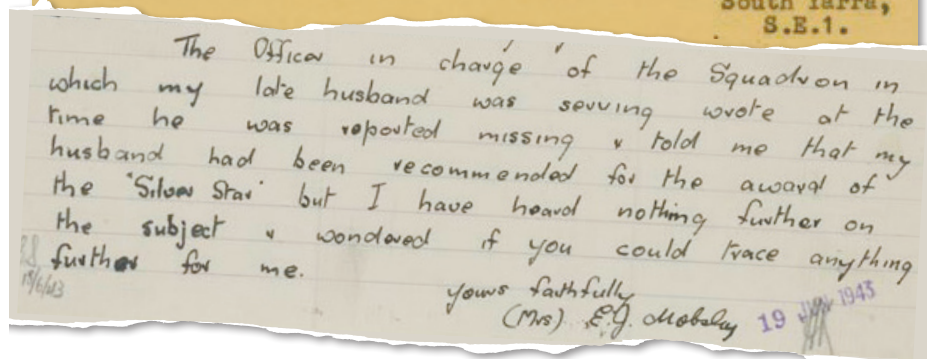 South Yarra,
S.E.1.
The Officer in charge of the Squadron in
which my late husband was serving wrote at the
time he was reported missing & told me that my
husband had been recommended for the award of
the 'Silver Star' but I have heard nothing further on
the subject & wondered if you could trace anything
further for me.
yours faithfully
(Mrs) E.J. Mobsby
19 1943